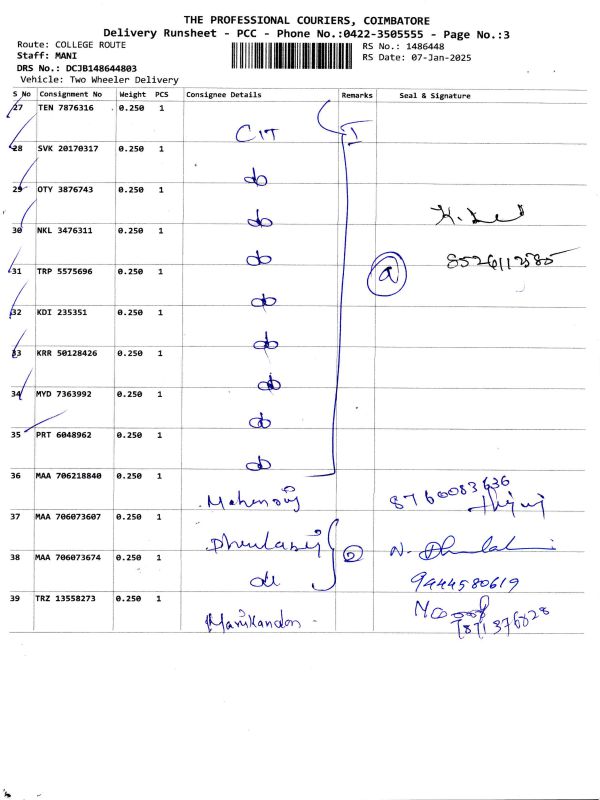 THE PROFESSIONAL COURIERS, COIMBATORE
Delivery Runsheet - PCC - Phone No.:0422-3505555 - Page No.:3
Route: COLLEGE ROUTE
RS No.: 1486448
Staff: MANI
RS Date: 07-Jan-2025
DRS No.: DCJB148644803
Vehicle: Two Wheeler Delivery
S No Consignment No Weight PCS Consignee Details Remarks Seal & Signature
27 TEN 7876316 0.250 1
CIT
28 SVK 20170317 0.250 1
do
29 OTY 3876743 0.250 1
do
30 NKL 3476311 0.250 1
do
31 TRP 5575696 0.250 1
do
32 KDI 235351 0.250 1
do
33 KRR 50128426 0.250 1
do
34 MYD 7363992 0.250 1
do
35 PRT 6048962 0.250 1
do
36 MAA 706218840 0.250 1
8760083636
37 MAA 706073607 0.250 1
38 MAA 706073674 0.250 1
do 9444580619
39 TRZ 13558273 0.250 1
Manikandan